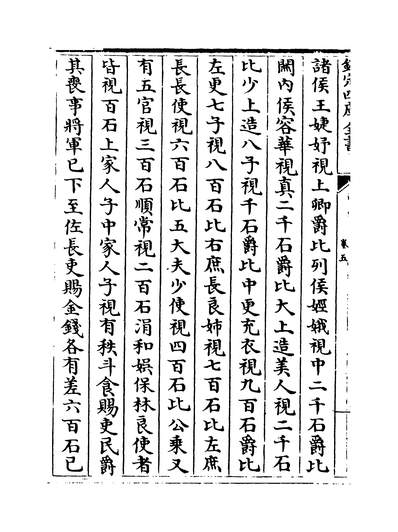 欽定四庫全書
卷五
諸侯王婕妤視上卿爵比列侯娙娥視中二千石爵比
闗内侯容華視真二千石爵比大上造美人視二千石
比少上造八子視千石爵比中更充衣視九百石爵比
左更七子視八百石比右庶長良姊視七百石比左庶
長長使視六百石比五大夫少使視四百石比公乗又
有五官視三百石順常視二百石涓和娯保林良使者
皆視百石上家人子中家人子視有秩斗食賜吏民爵
其喪事將軍已下至佐長吏賜金錢各有差六百石已